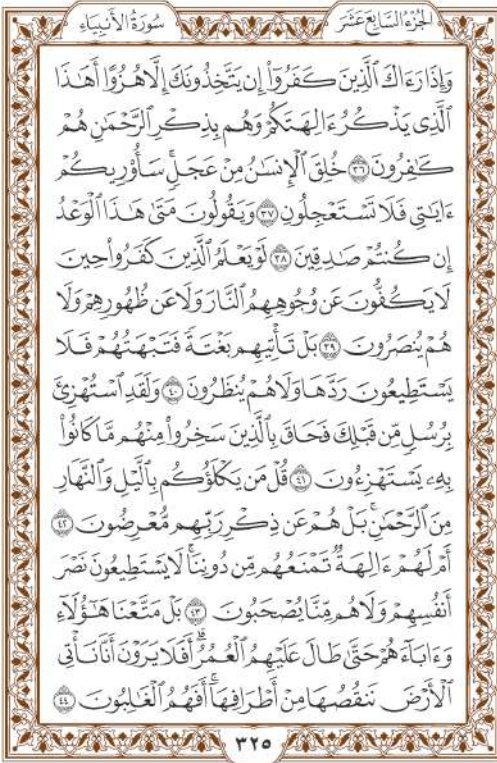 الجزء السابع عشر سورة الأنبياء
وَإِذَا رَءَاكَ ٱلَّذِينَ كَفَرُوٓاْ إِن يَتَّخِذُونَكَ إِلَّا هُزُوًا أَهَٰذَا
ٱلَّذِى يَذْكُرُ ءَالِهَتَكُمْ وَهُم بِذِكْرِ ٱلرَّحْمَٰنِ هُمْ
كَٰفِرُونَ ٣٦ خُلِقَ ٱلْإِنسَٰنُ مِنْ عَجَلٍ ۚ سَأُوْرِيكُمْ
ءَايَٰتِى فَلَا تَسْتَعْجِلُونِ ٣٧ وَيَقُولُونَ مَتَىٰ هَٰذَا ٱلْوَعْدُ
إِن كُنتُمْ صَٰدِقِينَ ٣٨ لَوْ يَعْلَمُ ٱلَّذِينَ كَفَرُواْ حِينَ
لَا يَكُفُّونَ عَن وُجُوهِهِمُ ٱلنَّارَ وَلَا عَن ظُهُورِهِمْ وَلَا
هُمْ يُنصَرُونَ ٣٩ بَلْ تَأْتِيهِم بَغْتَةً فَتَبْهَتُهُمْ فَلَا
يَسْتَطِيعُونَ رَدَّهَا وَلَا هُمْ يُنظَرُونَ ٤٠ وَلَقَدِ ٱسْتُهْزِئَ
بِرُسُلٍ مِّن قَبْلِكَ فَحَاقَ بِٱلَّذِينَ سَخِرُواْ مِنْهُم مَّا كَانُواْ
بِهِۦ يَسْتَهْزِءُونَ ٤١ قُلْ مَن يَكْلَؤُكُم بِٱلَّيْلِ وَٱلنَّهَارِ
مِنَ ٱلرَّحْمَٰنِ ۚ بَلْ هُمْ عَن ذِكْرِ رَبِّهِم مُّعْرِضُونَ ٤٢
أَمْ لَهُمْ ءَالِهَةٌ تَمْنَعُهُم مِّن دُونِنَا ۚ لَا يَسْتَطِيعُونَ نَصْرَ
أَنفُسِهِمْ وَلَا هُم مِّنَّا يُصْحَبُونَ ٤٣ بَلْ مَتَّعْنَا هَٰٓؤُلَآءِ
وَءَابَآءَهُمْ حَتَّىٰ طَالَ عَلَيْهِمُ ٱلْعُمُرُ ۗ أَفَلَا يَرَوْنَ أَنَّا نَأْتِى
ٱلْأَرْضَ نَنقُصُهَا مِنْ أَطْرَافِهَآ ۚ أَفَهُمُ ٱلْغَٰلِبُونَ ٤٤
٣٢٥